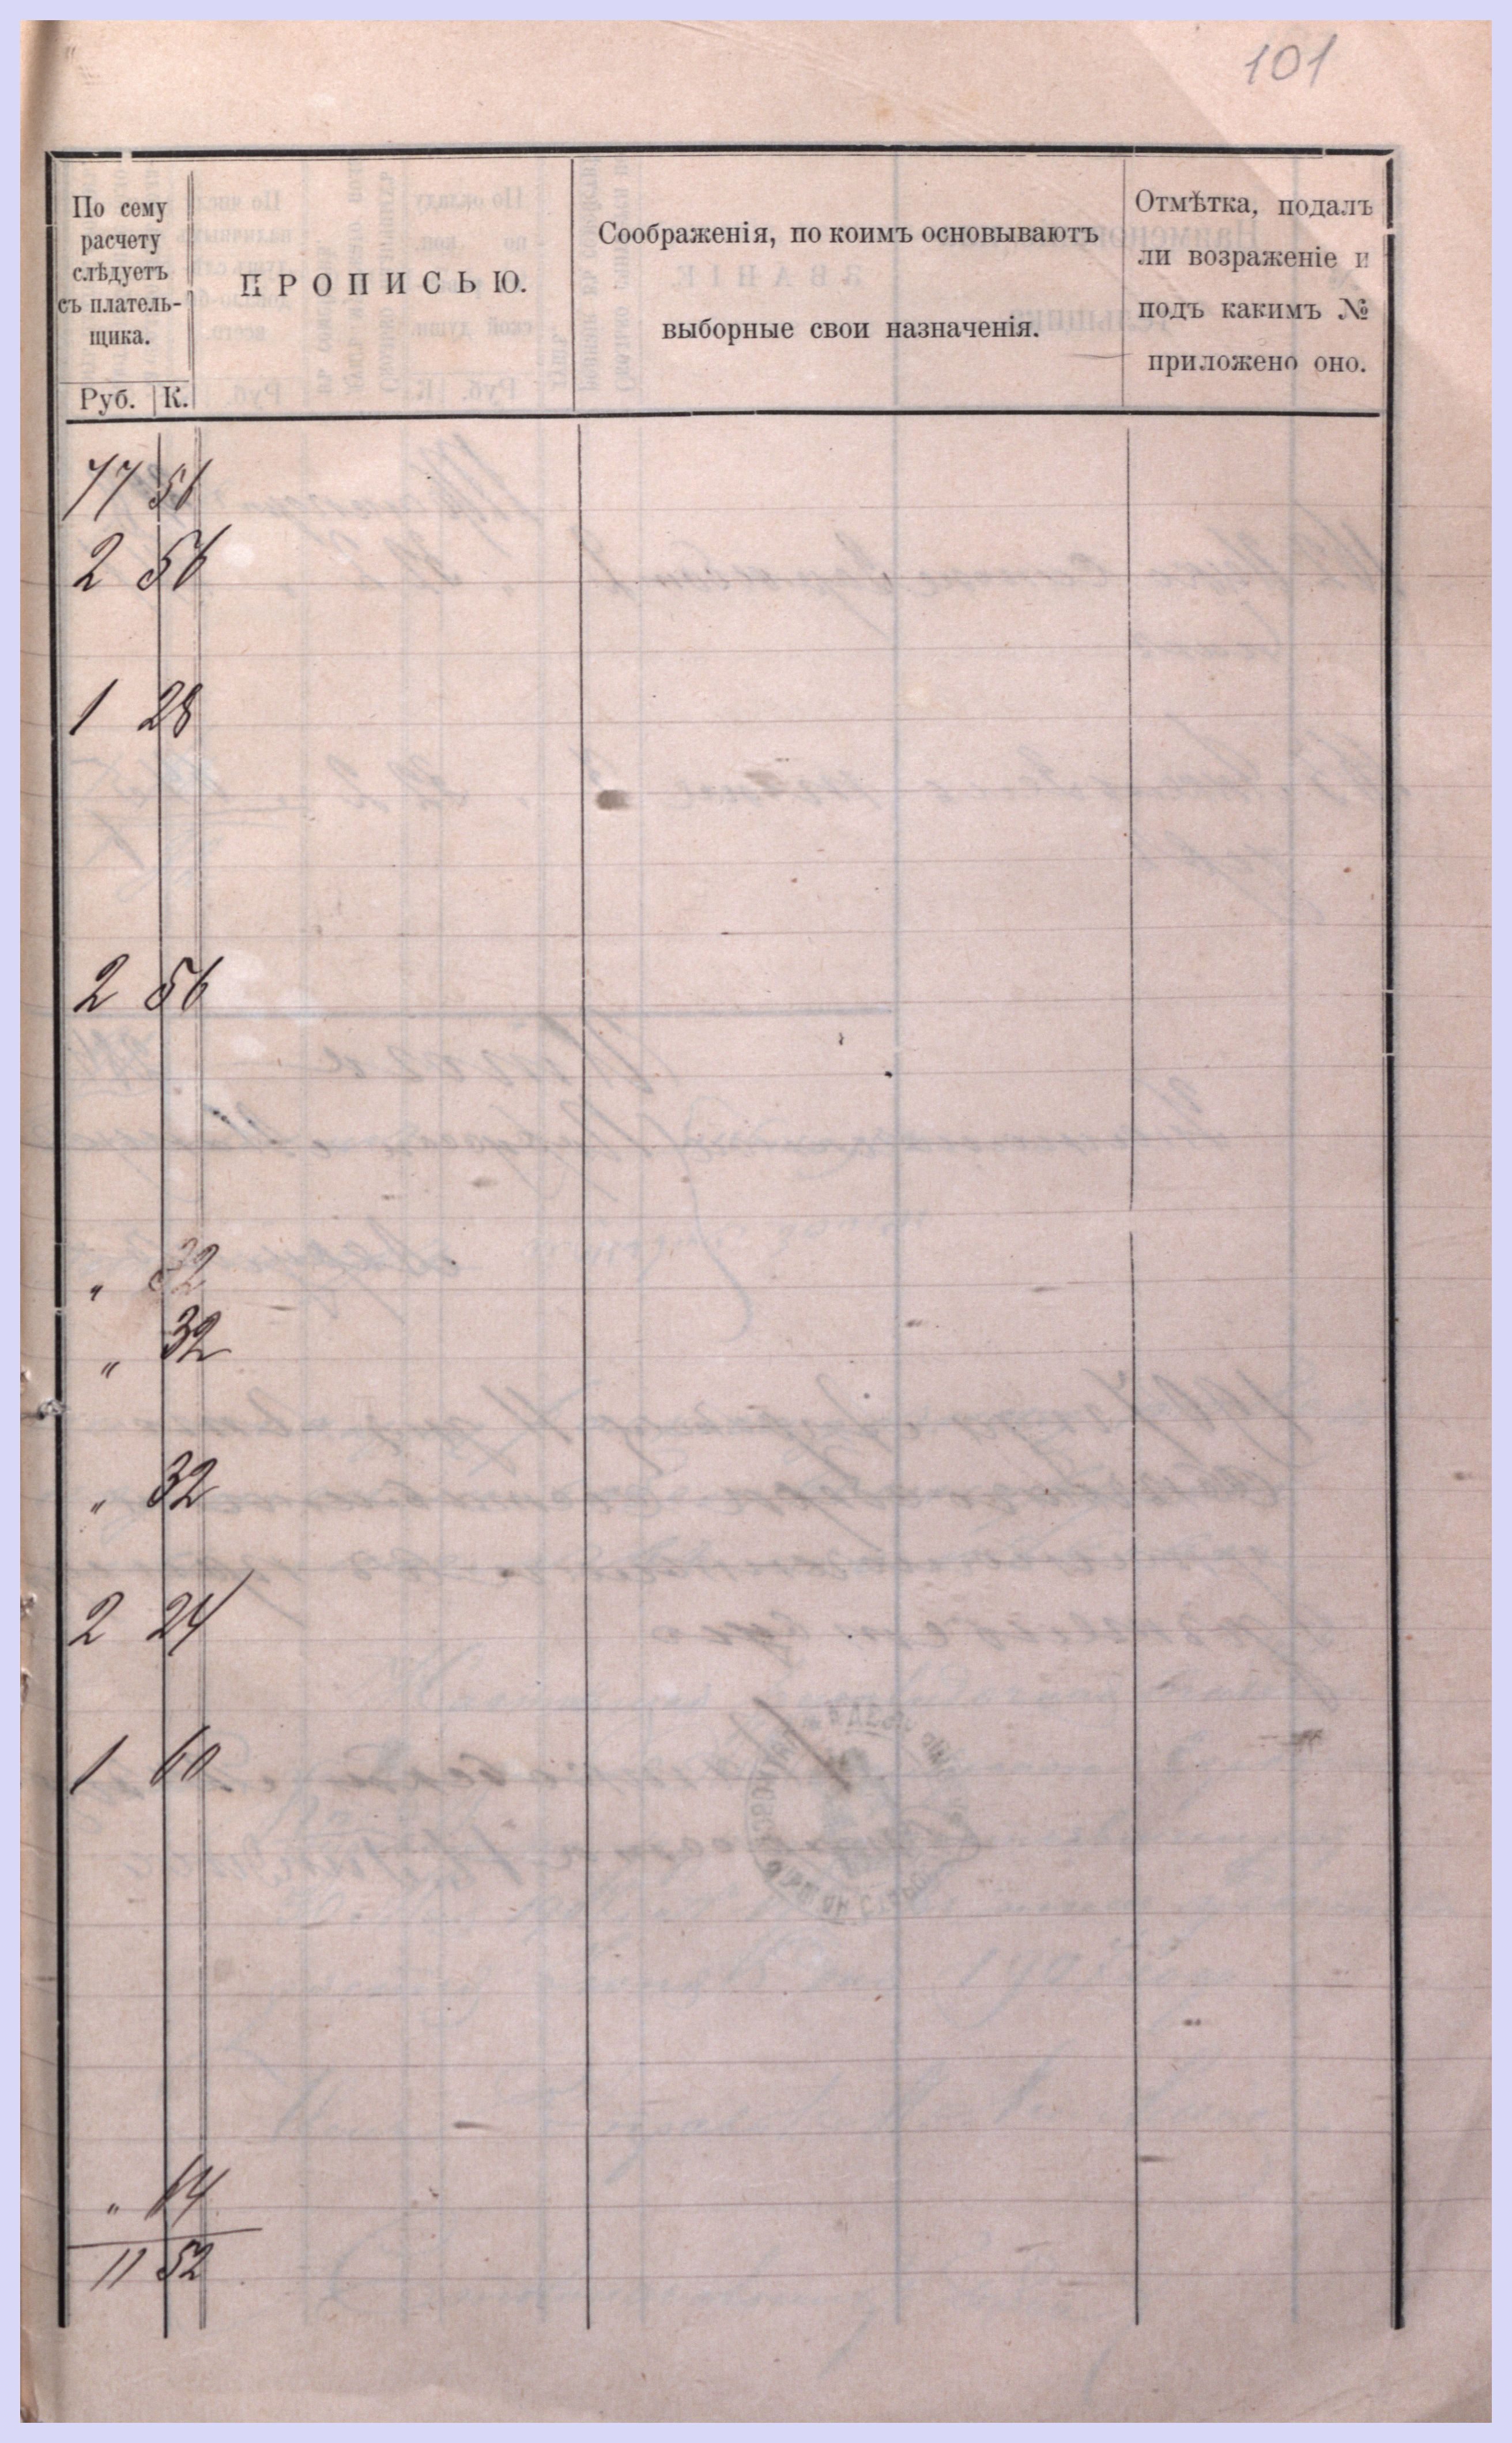 101
По сему
расчету
слѣдуетъ
съ платель-
щика.
Руб. К.
ПРОПИСЬЮ.
Соображенія, по коимъ основываютъ
выборные свои назначенія.
Отмѣтка, подалъ
ли возраженіе и
подъ какимъ №
приложено оно.
77
2 56
1 28
2 56
„ 32
„ 32
„ 32
2 24
1 60
„ 64
11 52